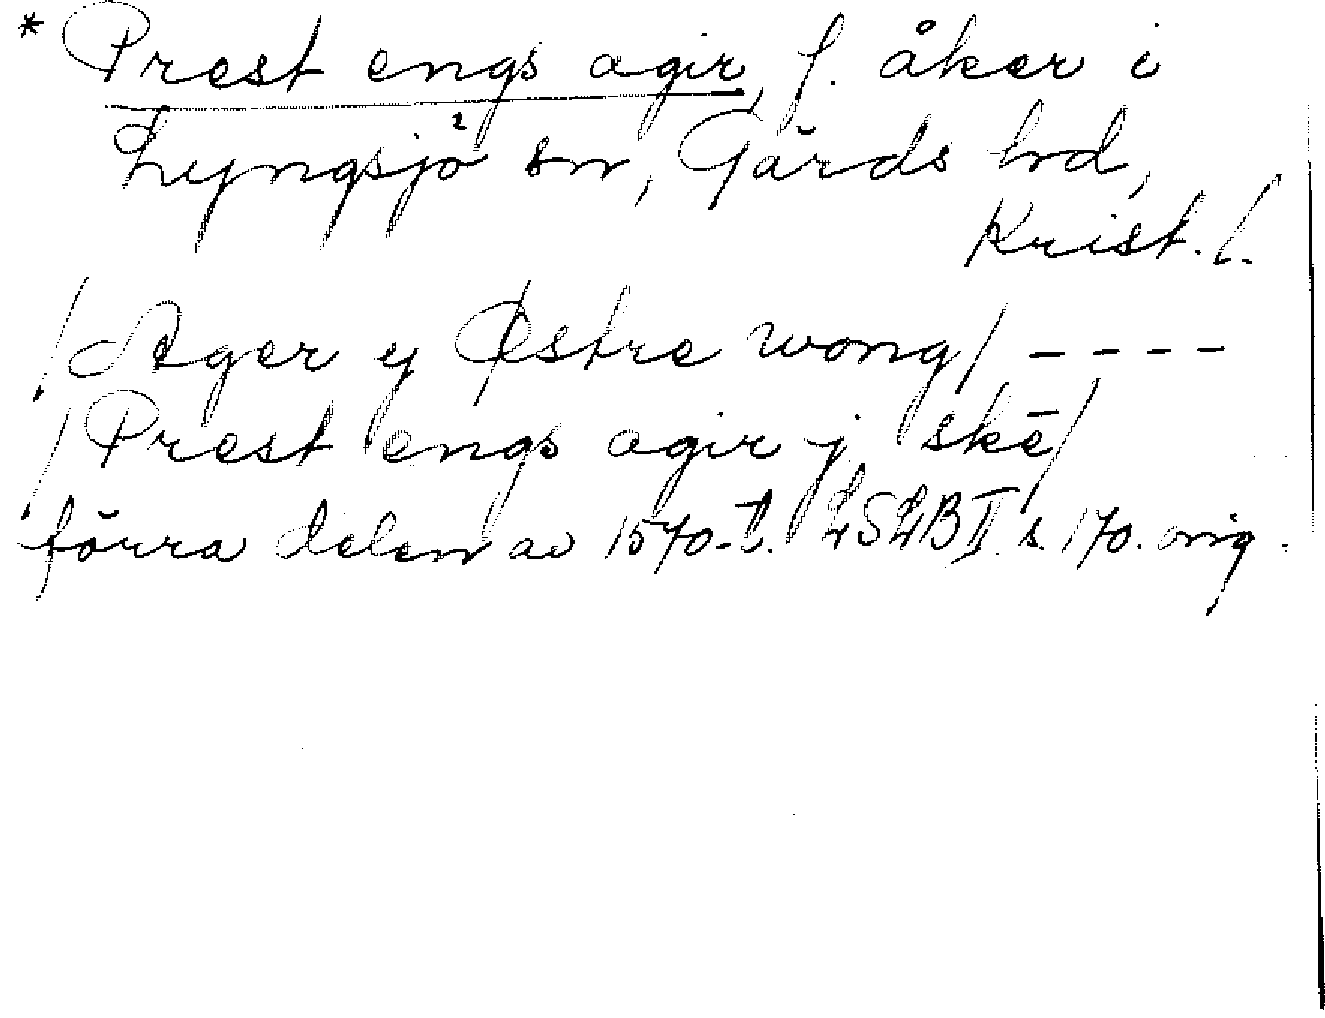 * Prest engs agir, f. åker i
Lyngsjö sn, Gärds hd,
Krist. l.
/Ager y Østre wong/ ----
/Prest engs agir j skē/
förra delen av 1570-t. LSLB II. s. 170. orig.